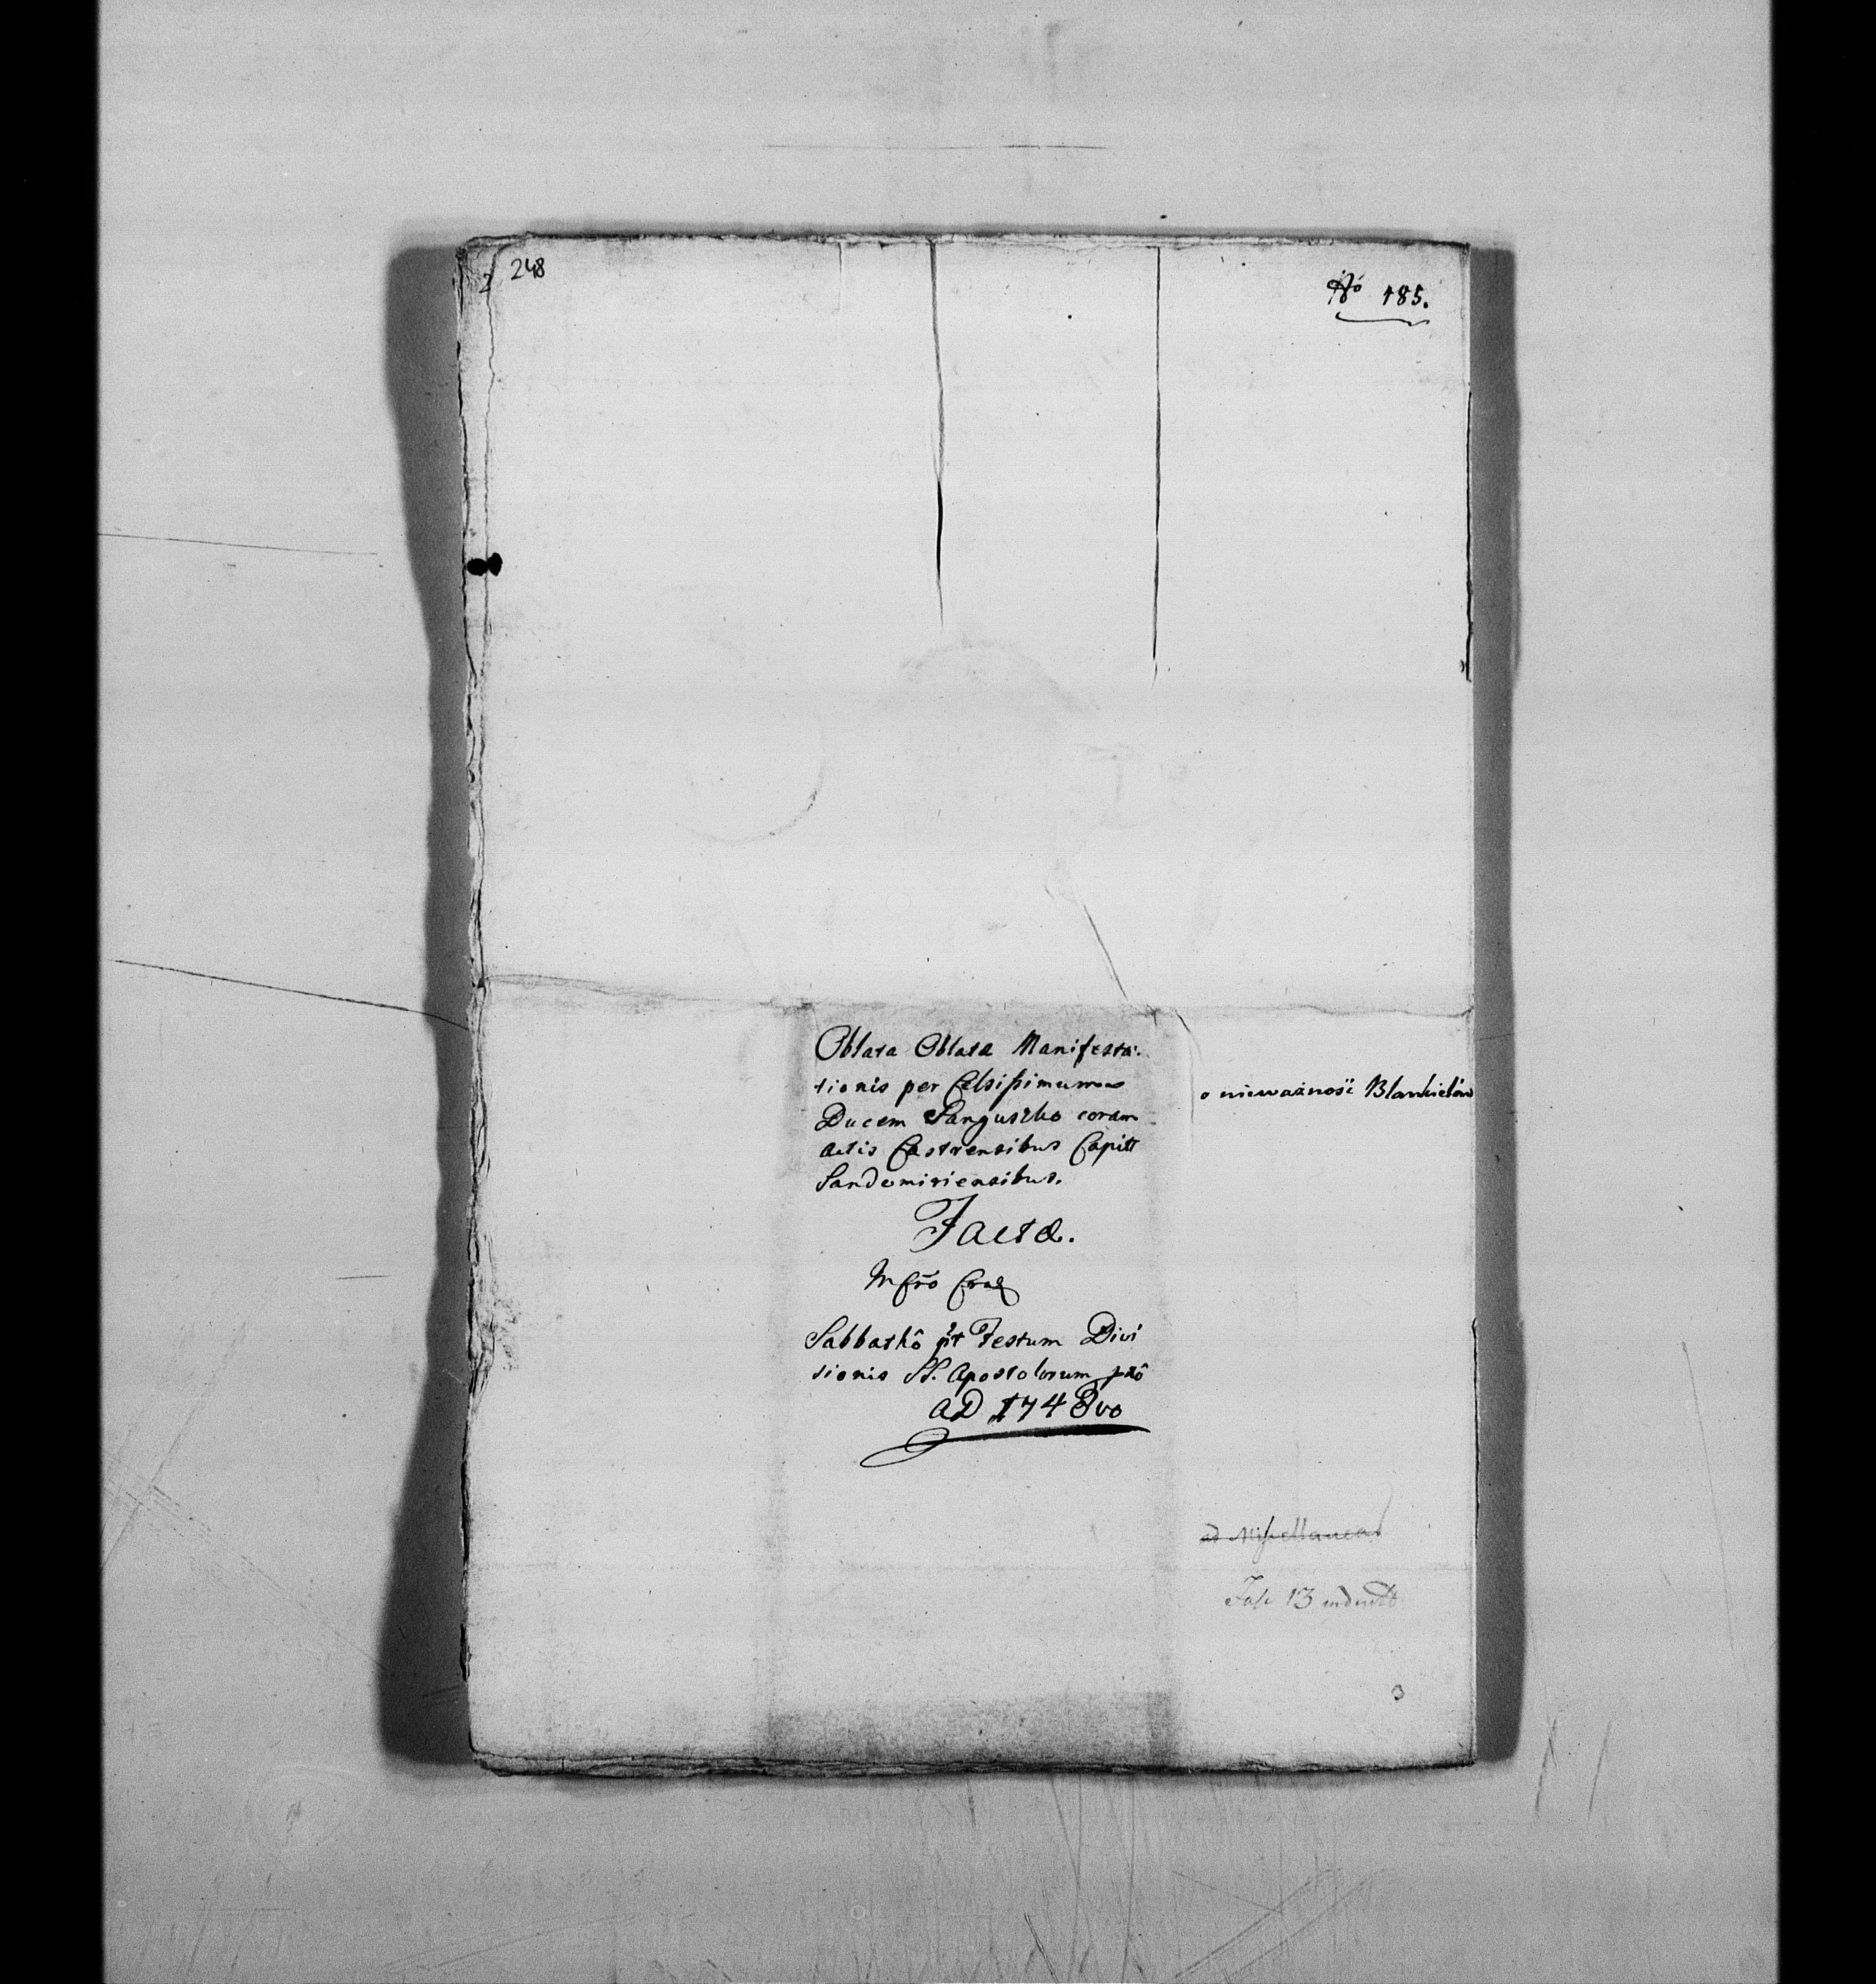 248
No 185.
Oblata Oblata Manifesta:
tionis per Celsissimum
Ducem Sanguszko coram
Actis Castrensibus Capitt
Sandomiriensibus.
Facta.
o nieważność Blankietów
Sabbathô pt Festum Divi
sionis SS. Apostolorum pxô
AD 1748vo
ad Miscellanea
Fasc 13
3